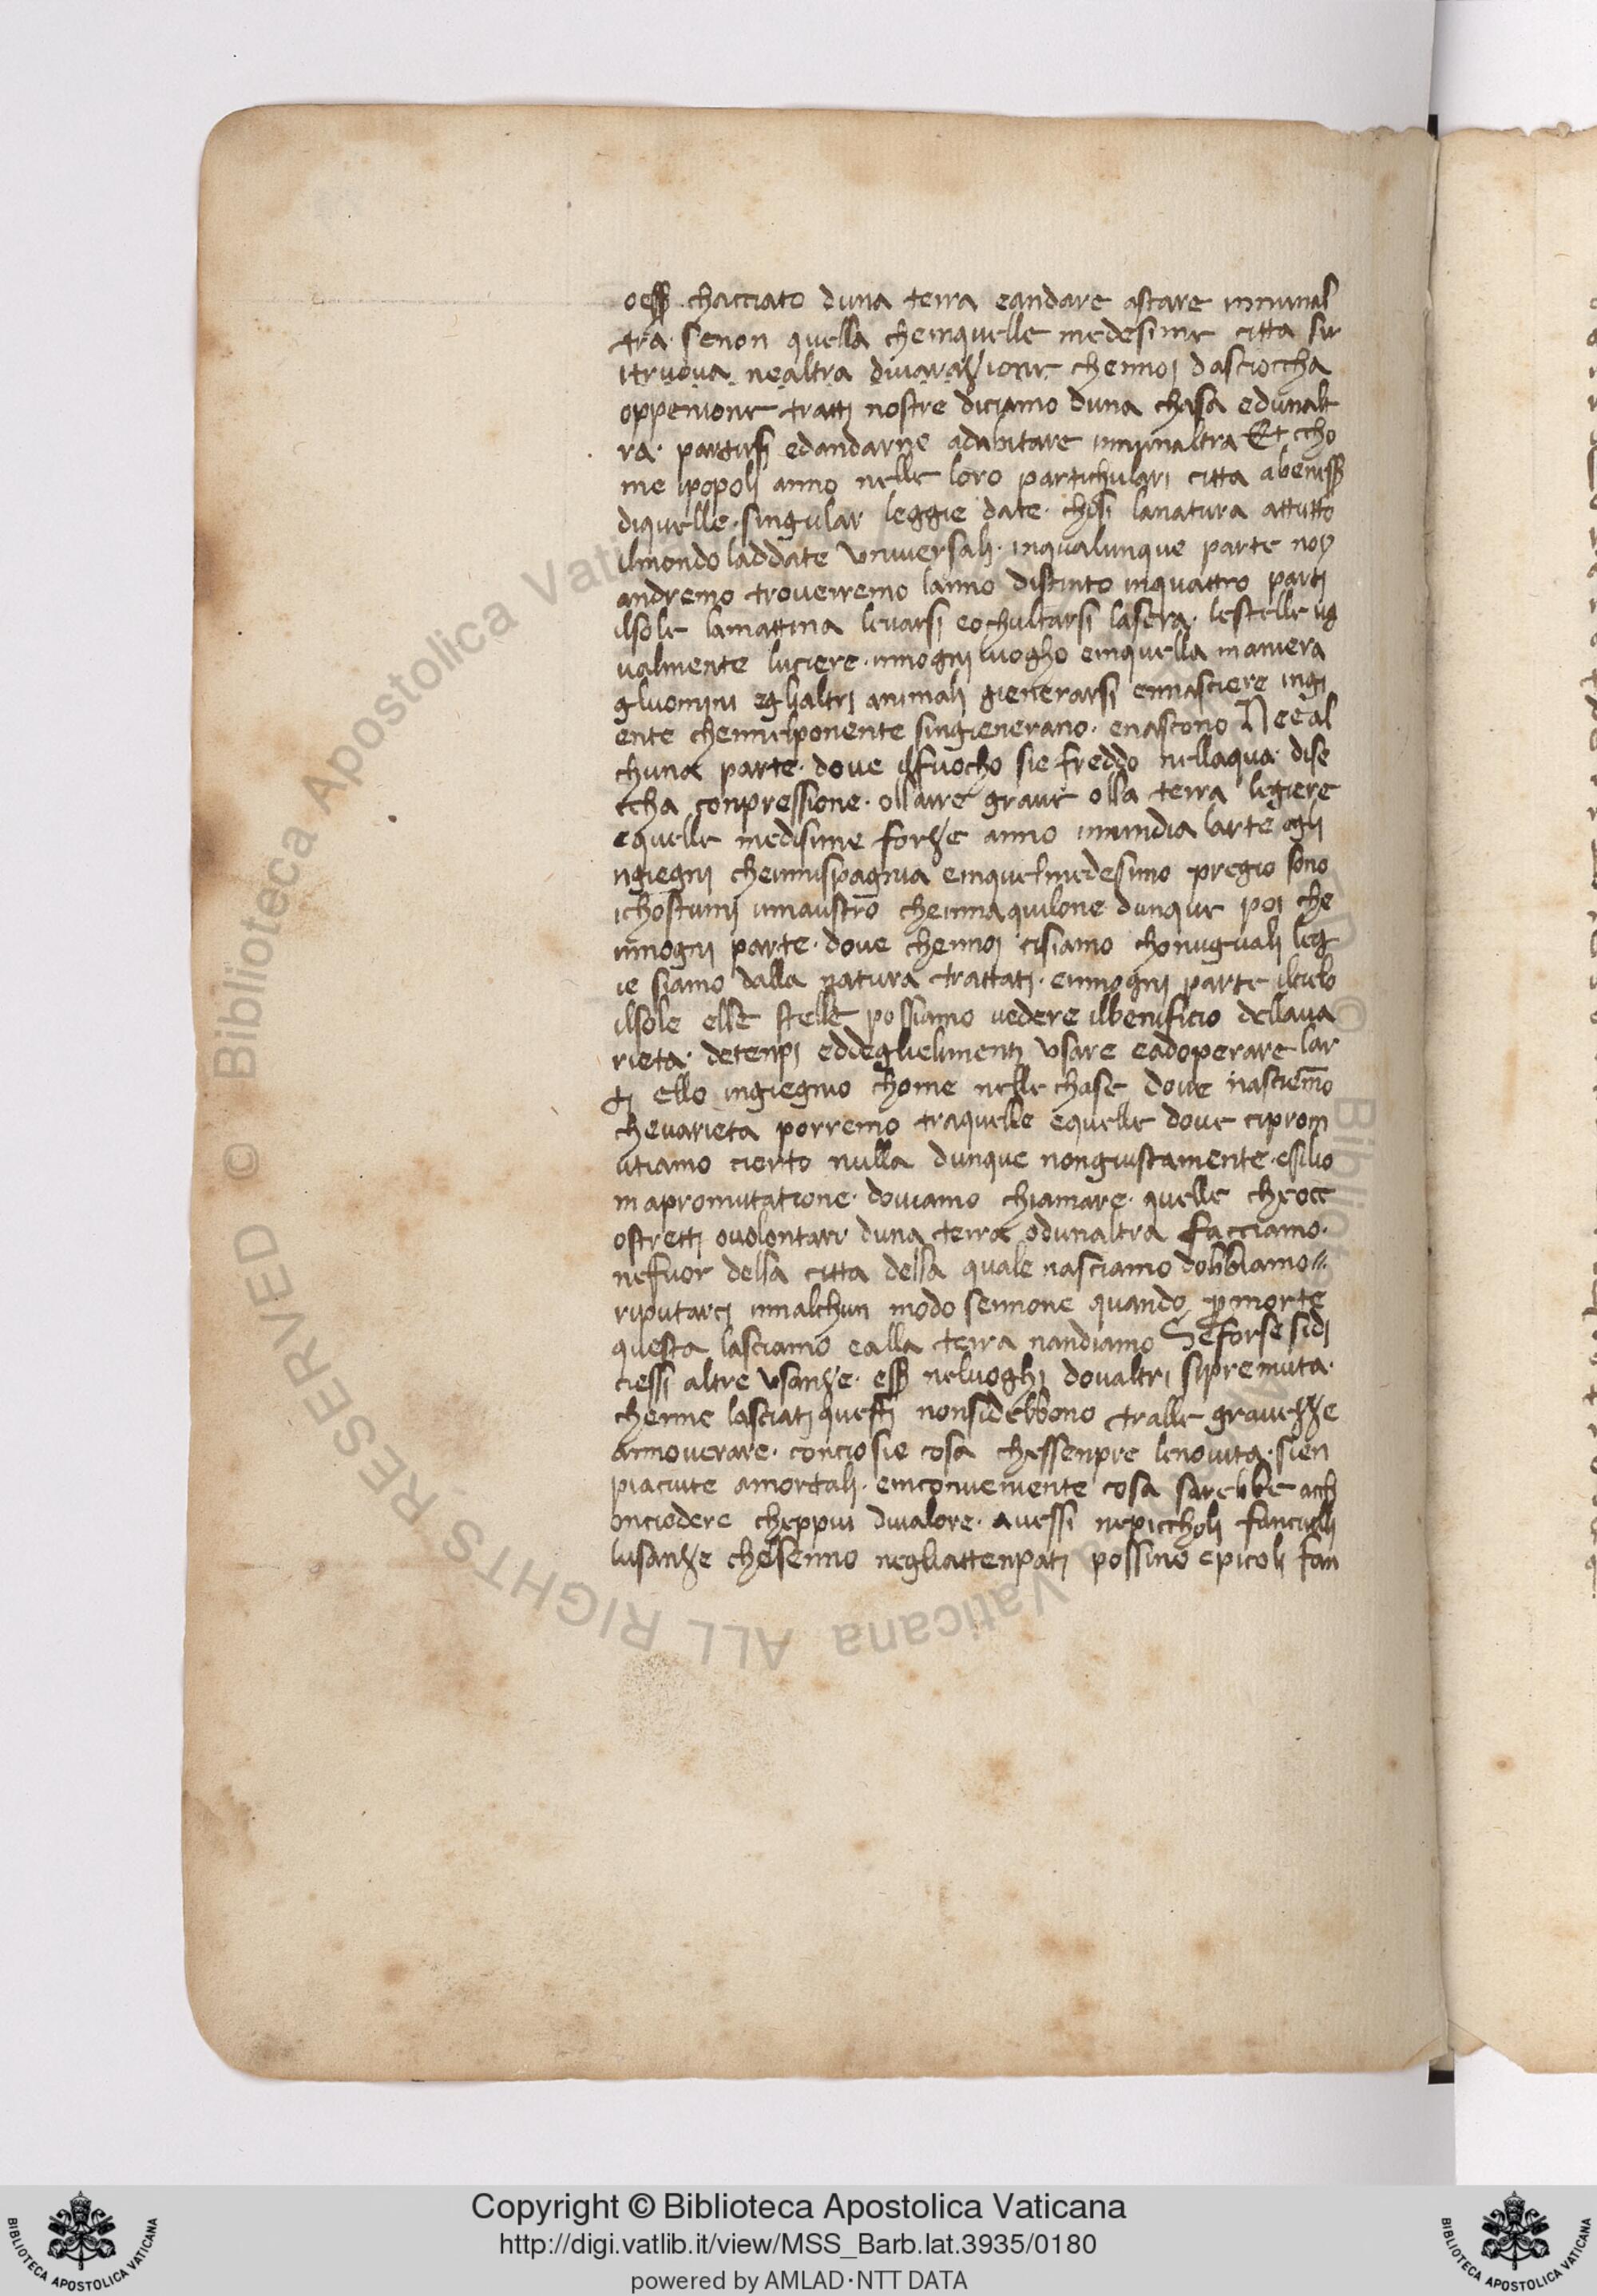 oeſſ chacciato duna terra eandare astare innunal
tra · senon quella cheinquelle medesime citta sir
itruova nealtra divarazione chennoj dasciocha
oppenione tratti nostre diciamo duna chasa edunalt
ra · partirsi edandarne adabitare innunaltra Et cho
me ipopolj anno nelle loro partichulari citta abeneſſ
diquelle · singular leggie date · chosi lanatura attutto
ilmondo laddate universalj · inqualunque parte noy
andremo troverremo lanno distinto inquattro parti
ilsole lamattina levarsi eochultarsi lasera · lestelle ug
ualmente luciere · innogni luogho einquella maniera
gluomini eglialtri animali gienerarsi ennasciere ingi
ente chennelponente singienerano · enascono Neeal
chuna parte · dove ilfuocho sie freddo nellaqua · dise
ccha conpressione · ollaire grave olla terra legiere
equelle medisime forze anno innindia larte ogli
ngiegni chennispagnia einquelmedesimo pregio sono
ichostumi innaustro chennaquilone dunque poi che
innogni parte · dove chennoj cisiamo chonugualj leg
ie siamo dalla natura trattati · ennogni parte ilcielo
ilsole elle stelle possiamo vedere ilbenificio dellava
rieta · detenpi eddeglielimenti usare eadoperare lar
ti ello ingiegnio chome nelle chase dove nasciemo
chevarieta porremo traquelle equelle dove ciprom
utiamo cierto nulla dunque nongiustamente · essilio
mapromutatione · doviamo chiamare · quelle cheocc
ostretti ovolontari duna terra odunaltra facciamo ·
nefuor della citta della quale nasciamo dobbiamo
riputarci innalchun modo sennone quando p morte
questa lasciamo ealla terra nandiamo Seforse sidi
ciessi altre usanze · eſſ neluoghi dovaltri sipremuta ·
chenne lasciati questi nonsidebbono tralle gravezze
annoverare · conciosie cosa chessenpre lenovita · sien
piaciute amortalj · einconveniente cosa sarebbe acch
onciedere cheppiu divalore · avessi nepiccholi fanciulli
lusanze chesenno negliattenpati possino epicolj fan
Copyright © Biblioteca Apostolica Vaticana
http://digi.vatlib.it/view/MSS_Barb.lat.3935/0180
powered by AMLAD·NTT DATA